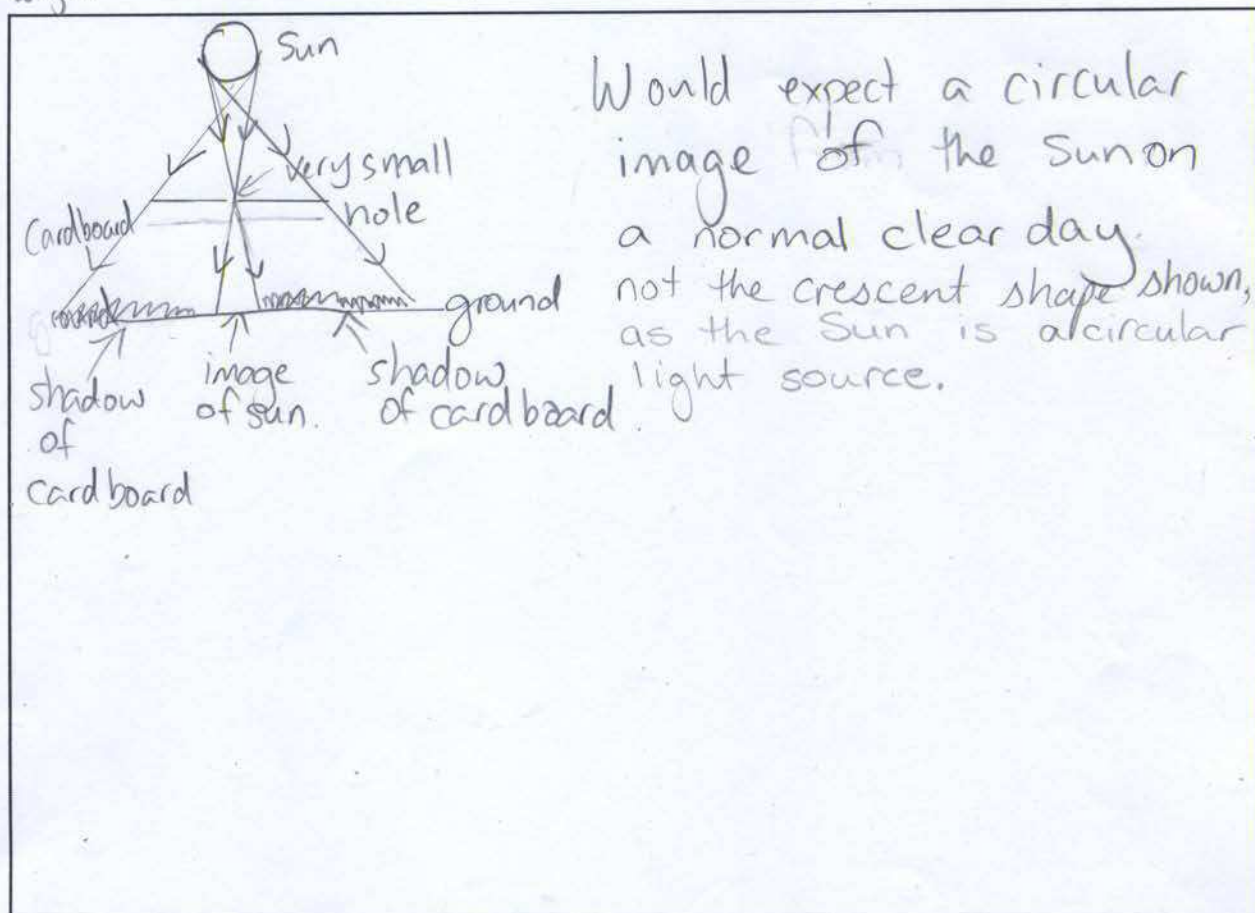 Sun
very small
hole
Cardboard
ground
shadow
of
cardboard
image
of sun.
shadow
of cardboard.
Would expect a circular
image of the Sun on
a normal clear day.
not the crescent shape shown,
as the Sun is a circular
light source.